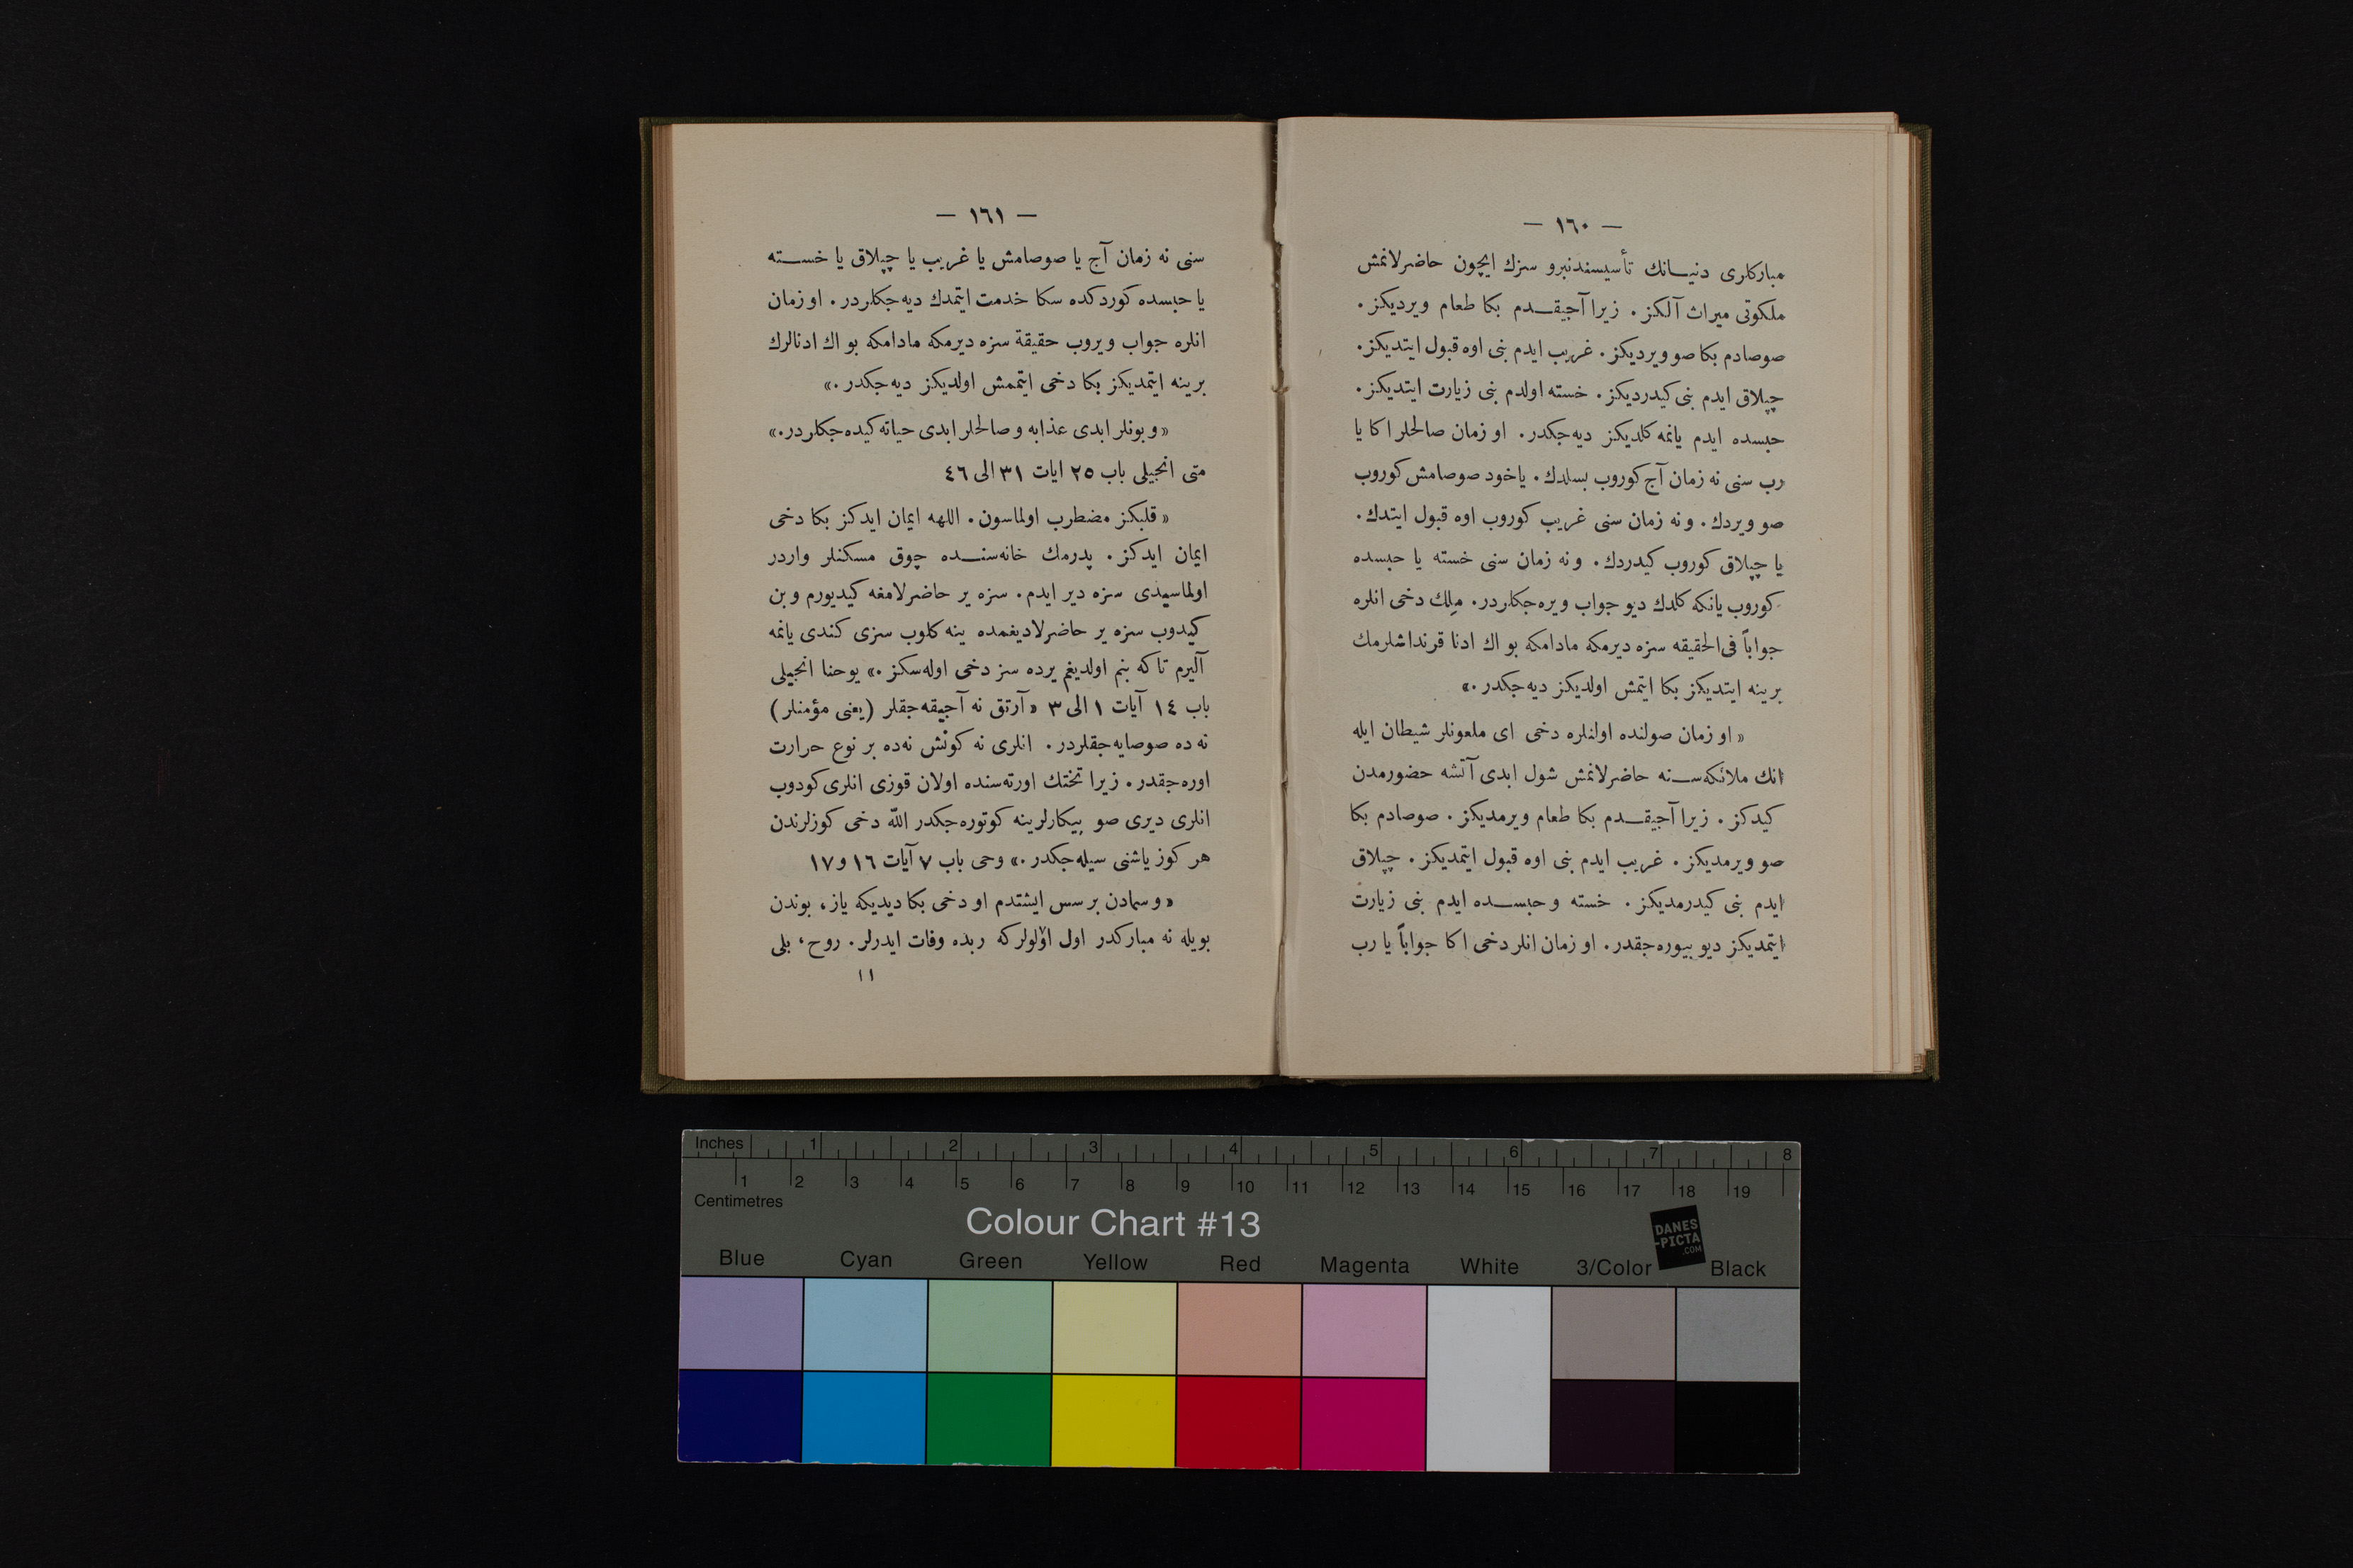 — ١٦٠ —
مباركلرى دنيانك تأسيسندنبرو سزك ايچون حاضرلانمش
ملكوتى ميراث آلكز. زيرا آجيقدم بكا طعام ويرديكز.
صوصادم بكا صو ويرديكز. غريب ايدم بنى اوه قبول ايتديكز.
چپلاق ايدم بنى كيدرديكز. خسته اولدم بنى زيارت ايتديكز.
حبسده ايدم يانمه كلديكز ديه‌جكدر. او زمان صالحلر اكا يا
رب سنى نه زمان آج كوروب بسلدك. ياخود صوصامش كوروب
صو ويردك. ونه زمان سنى غريب كوروب اوه قبول ايتدك.
يا چپلاق كوروب كيدردك. ونه زمان سنى خسته يا حبسده
كوروب يانكه كلدك ديو جواب ويره‌جكلردر. ملِك دخى انلره
جواباً فى‌الحقيقه سزه ديرمكه مادامكه بو اك ادنا قرنداشلرمك
برينه ايتديكز بكا ايتمش اولديكز ديه‌جكدر.»
«او زمان صولنده اولنلره دخى اى ملعونلر شيطان ايله
انك ملائكه‌سنه حاضرلانمش شول ابدى آتشه حضورمدن
كيدكز. زيرا آجيقدم بكا طعام ويرمديكز. صوصادم بكا
صو ويرمديكز. غريب ايدم بنى اوه قبول ايتمديكز. چپلاق
ايدم بنى كيدرمديكز. خسته وحبسده ايدم بنى زيارت
ايتمديكز ديو بيوره‌جقدر. او زمان انلر دخى اكا جواباً يا رب
— ١٦١ —
سنى نه زمان آج يا صوصامش يا غريب يا چپلاق يا خسته
يا حبسده كوردكده سكا خدمت ايتمدك ديه‌جكلردر. او زمان
انلره جواب ويروب حقيقةً سزه ديرمكه مادامكه بو اك ادنالرك
برينه ايتمديكز بكا دخى ايتممش اولديكز ديه‌جكدر.»
«وبونلر ابدى عذابه وصالحلر ابدى حياته كيده‌جكلردر.»
متى انجيلى باب ٢٥ ايات ٣١ الى ٤٦
«قلبكز مضطرب اولماسون. اللهه ايمان ايدكز بكا دخى
ايمان ايدكز. پدرمك خانه‌سنده چوق مسكنلر واردر
اولماسيدى سزه دير ايدم. سزه ير حاضرلامغه كيديورم وبن
كيدوب سزه ير حاضرلاديغمده ينه كلوب سزى كندى يانمه
آليرم تاكه بنم اولديغم يرده سز دخى اوله‌سكز.» يوحنا انجيلى
باب ١٤ آيات ١ الى ٣ «آرتق نه آجيقه‌جقلر (يعنى مؤمنلر)
نه ده صوصايه‌جقلردر. انلرى نه كونش نه‌ده بر نوع حرارت
اوره‌جقدر. زيرا تختك اورته‌سنده اولان قوزى انلرى كودوب
انلرى ديرى صو بيكارلرينه كوتوره‌جكدر اللّه دخى كوزلرندن
هر كوز ياشنى سيله‌جكدر.» وحى باب ٧ آيات ١٦ و١٧
«وسمادن بر سس ايشتدم او دخى بكا ديديكه ياز، بوندن
بويله نه مباركدر اول اؤلولركه ربده وفات ايدرلر. روح، بلى
١١
Inches 1 2 3 4 5 6 7 8
1 2 3 4 5 6 7 8 9 10 11 12 13 14 15 16 17 18 19
Centimetres
Colour Chart #13
DANES
-PICTA
.COM
Blue Cyan Green Yellow Red Magenta White 3/Color Black